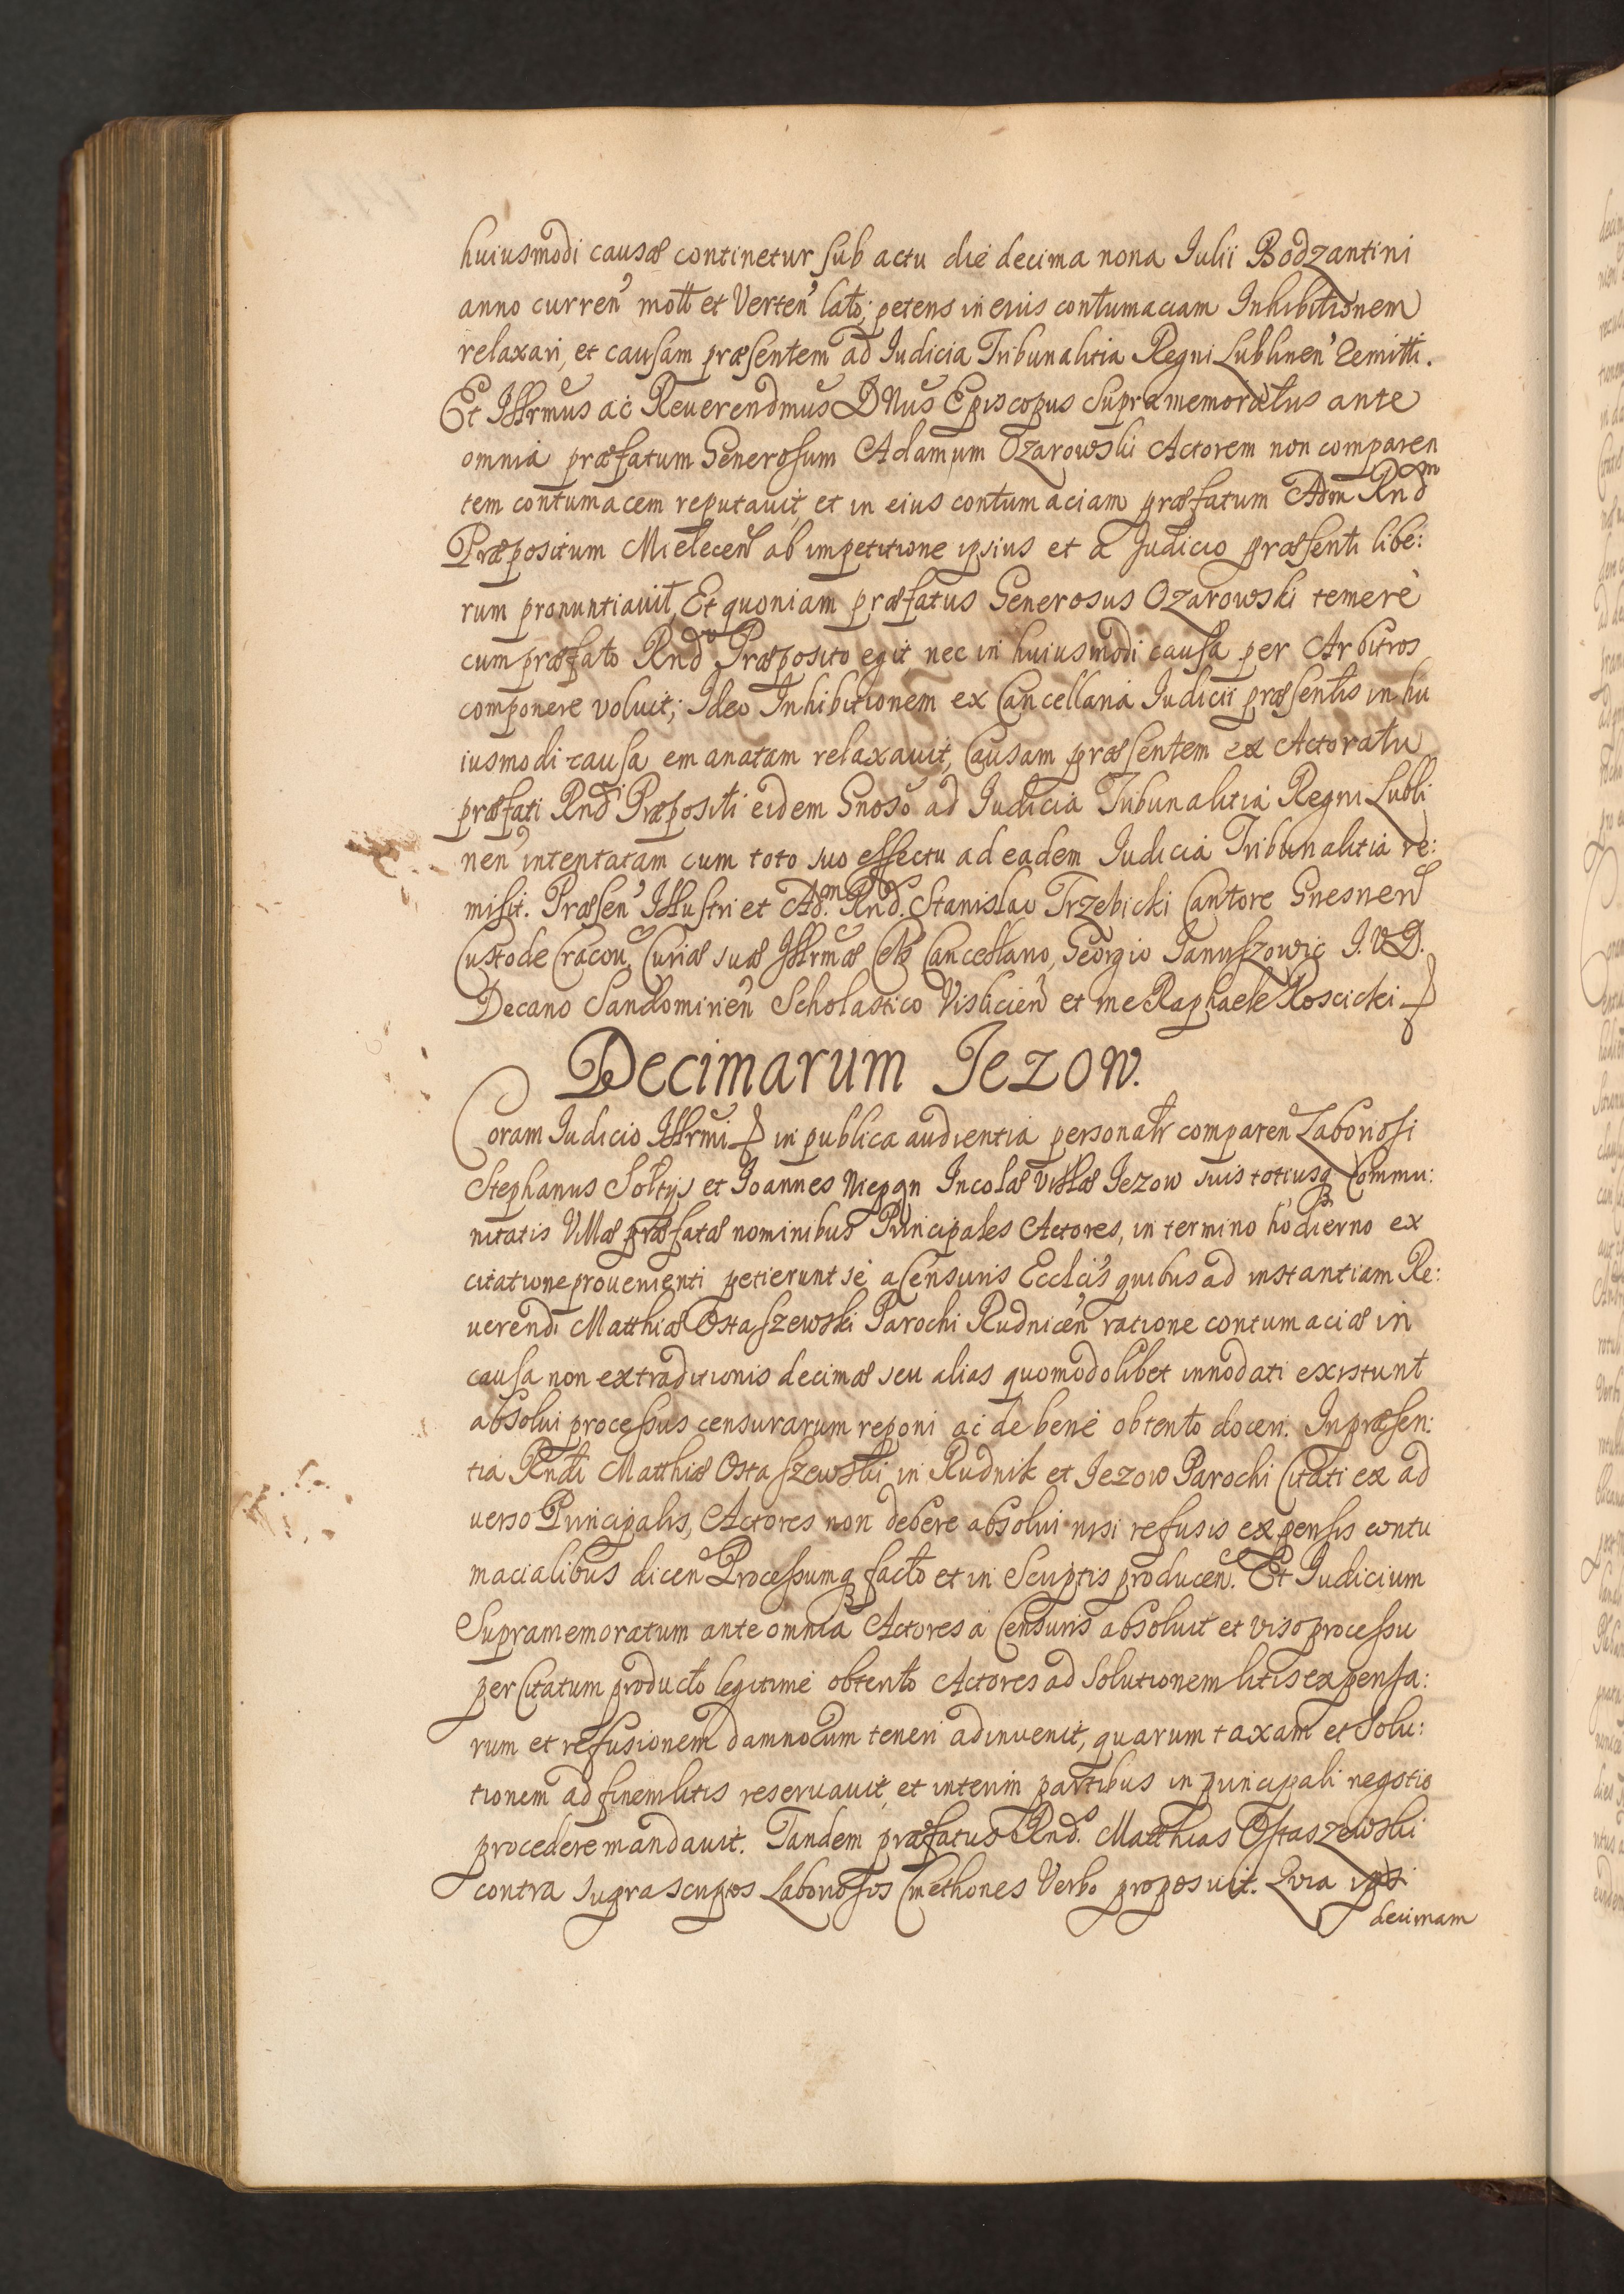 huiusmodi causæ continetur sub actu die decima nona Iulii Bodzantini
anno curren' mott et Verten' lato; petens in eius contumaciam Inhibitionem
relaxari, et causam præsentem ad Iudicia Tribunalitia Regni Lublinen' remitti.
Et Illrmus ac Reuerendmus DNus Episcopus Supramemoratus ante
omnia præfatum Generosum Adamum Ozarowski Actorem non comparen
tem contumacem reputauit, et in eius contumaciam præfatum Adm Rndm
Præpositum Mielecen ab impetitione ipsius et a Judicio præsenti libe:
rum pronuntiauit, Et quoniam præfatus Generosus Ozarowski temerè
cum præfato Rndo Præposito egit nec in huiusmodi causa per Arbitros
componere voluit; Ideo Inhibitionem ex Cancellaria Iudicii præsentis in hu
iusmodi causa emanatam relaxauit, Causam præsentem ex Actoratu
præfati Rndi Præpositi eidem Gnoso ad Iudicia Tribunalitia Regni Lubli
nen' intentatam cum toto suo effectu ad eadem Iudicia Tribunalitia re:
misit. Præsen' Illustri et Adm. Rnd. Stanislao Trzebicki Cantore Gnesnen
Custode Cracou, Curiæ suæ Illrmæ Cels Cancellario, Georgio Januszowic I.V.D.
Decano Sandomirien Scholastico Vislicien et me Raphaele Roscicki
Decimarum Jezow.
Coram Iudicio Illrmi in publica audientia personalr comparen Laboriosi
Stephanus Soltys et Joannes Incolæ Villæ Jezow suis totiusq Commu:
nitatis Villæ præfatæ nominibus Principales Actores, in termino hodierno ex
citatione prouenienti petierunt se a Censuris Ecclcis quibus ad instantiam Re:
uerendi Matthiæ Ostaszewski Parochi Rudnicen' ratione contumaciæ in
causa non extraditionis decimæ seu alias quomodolibet innodati existunt
absolui processus censurarum reponi ac de bene obtento doceri. In præsen:
tia Rndi Matthiæ Ostaszewski in Rudnik et Jezow Parochi Citati ex ad
uerso Principalis, Actores non debere absolui nisi refusis expensis contu
macialibus dicen Processumq facto et in Scriptis producen. Et Iudicium
Supramemoratum ante omnia Actores a Censuris absoluit et viso processu
per Citatum producto legitime obtento Actores ad Solutionem litis expensa:
rum et refusionem damnorum teneri adinuenit, quarum taxam et Solu:
tionem ad finem litis reseruauit, et interim partibus in principali negotio
procedere mandauit. Tandem præfatus Rnd. Matthias Ostaszewski
contra suprascriptos Laboriosos Cmethones Verbo proposuit. Quia ipsi
decimam